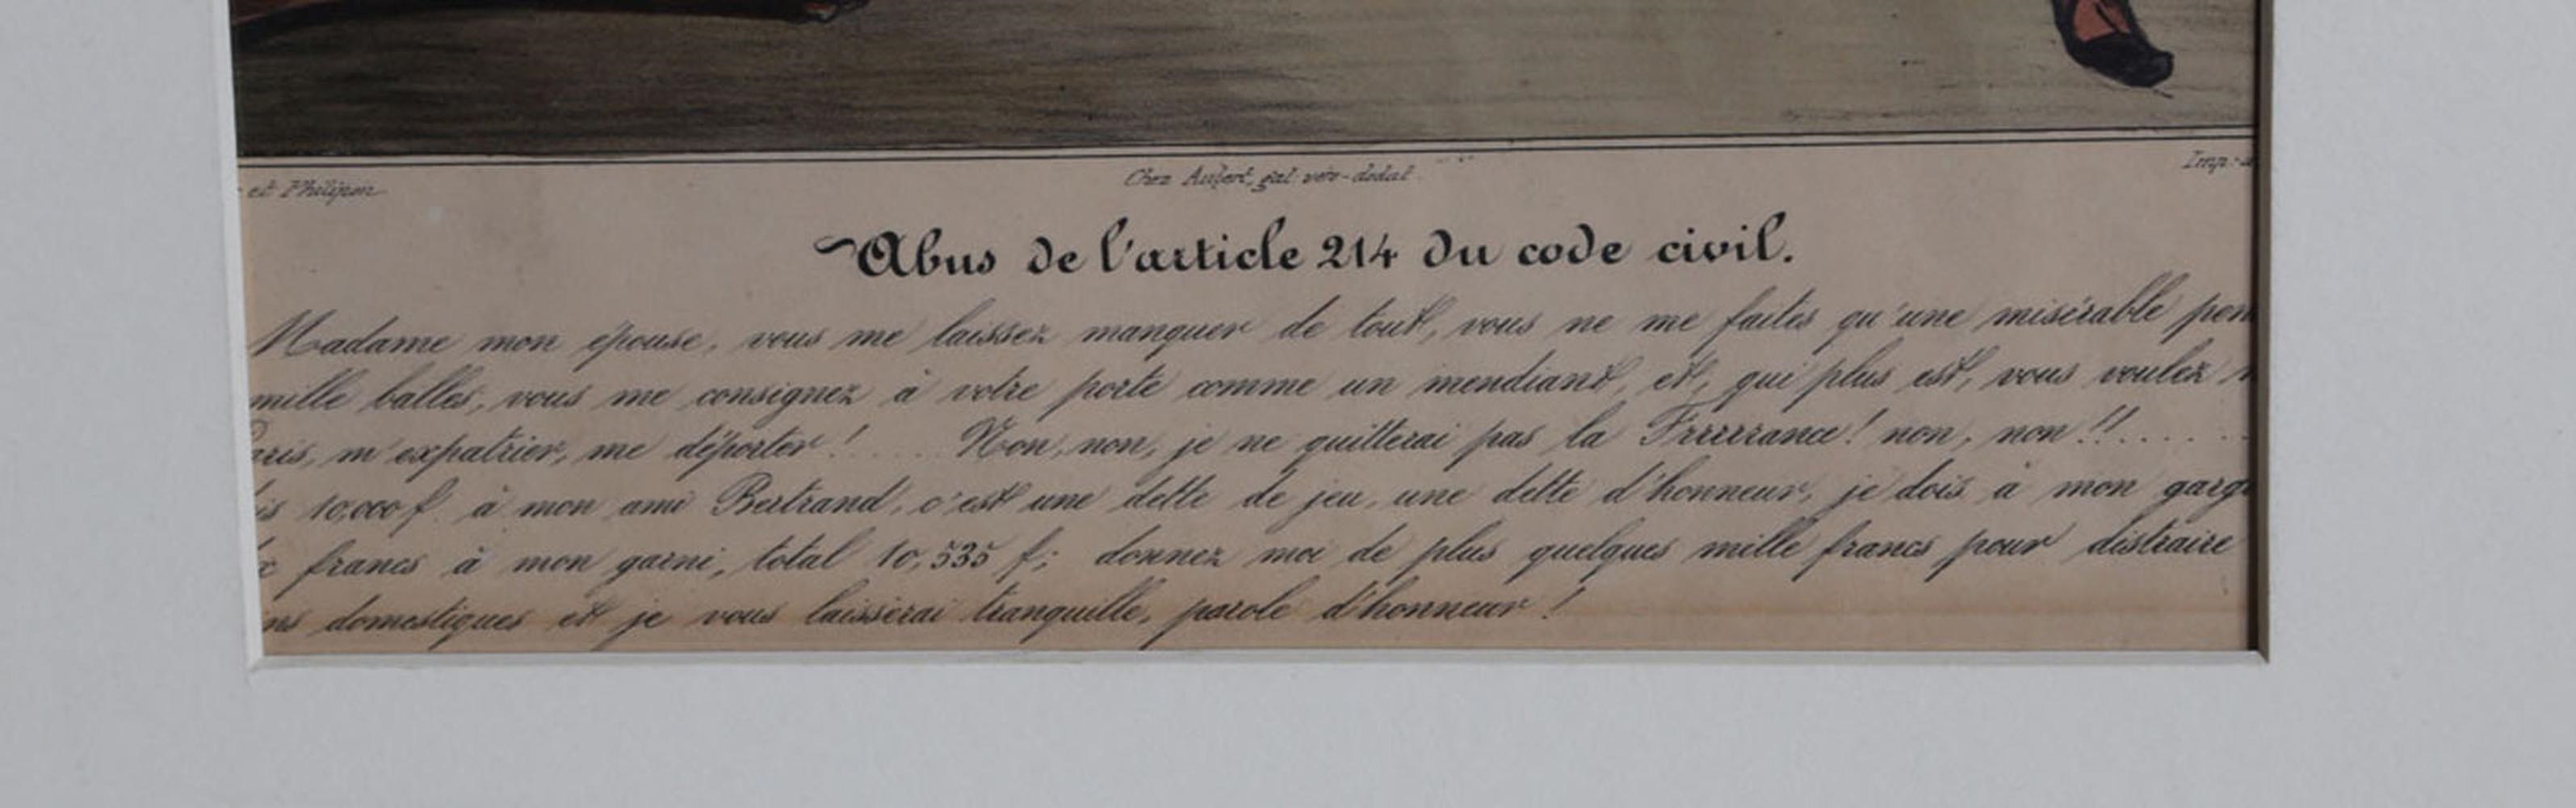 et Philipon
Chez Aubert, gal. véro-dodat.
Imp.
Abus de l'article 214 du code civil.
Madame mon épouse, vous me laissez manquer de tout, vous ne me faites qu'une misérable pen
mille balles, vous me consignez à votre porte comme un mendiant, et, qui plus est, vous voulez
aris, m'expatrier, me déporter !.... Non, non, je ne quitterai pas la Frrrrrance! non, non!!......
is 10,000 f. à mon ami Bertrand, c'est une dette de jeu, une dette d'honneur, je dois à mon garg
x francs à mon garni, total 10,535 f; donnez moi de plus quelques mille francs pour distraire
ns domestiques et je vous laisserai tranquille, parole d'honneur !